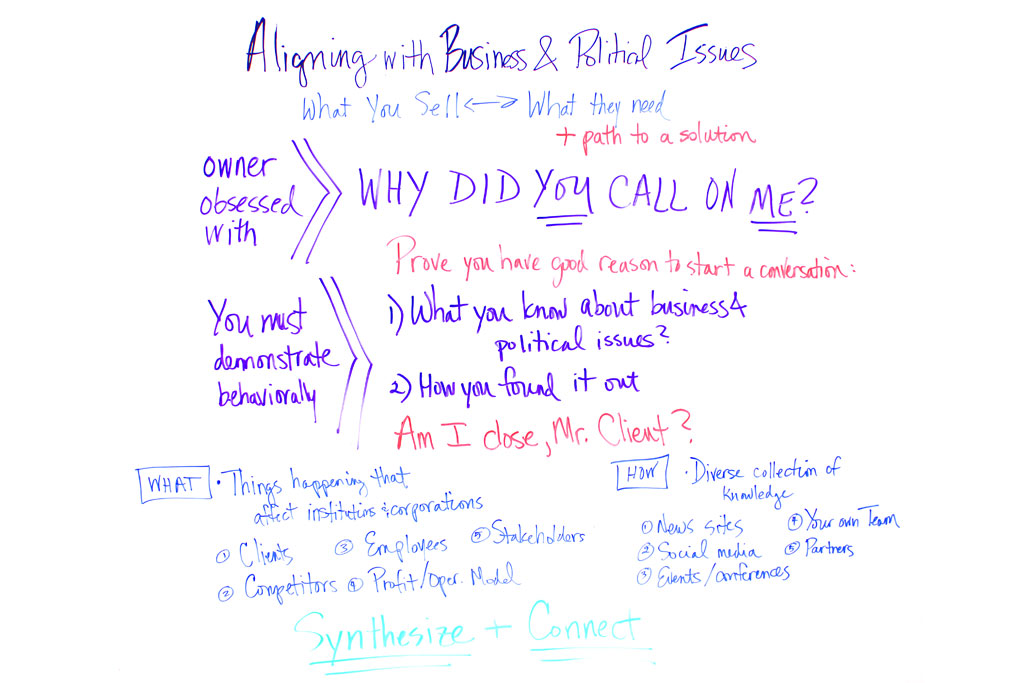 Aligning with Business & Political Issues
What You Sell <--> What they need
+ path to a solution
owner
obsessed
with
WHY DID YOU CALL ON ME?
Prove you have good reason to start a conversation:
You must
demonstrate
behaviorally
1) What you know about business &
political issues?
2) How you found it out
Am I close, Mr. Client?
WHAT • Things happening that
affect institutions & corporations
① Clients
② Competitors
③ Employees
④ Profit/Oper. Model
⑤ Stakeholders
HOW • Diverse collection of
knowledge
① News sites
② Social media
③ Events/conferences
④ Your own Team
⑤ Partners
Synthesize + Connect